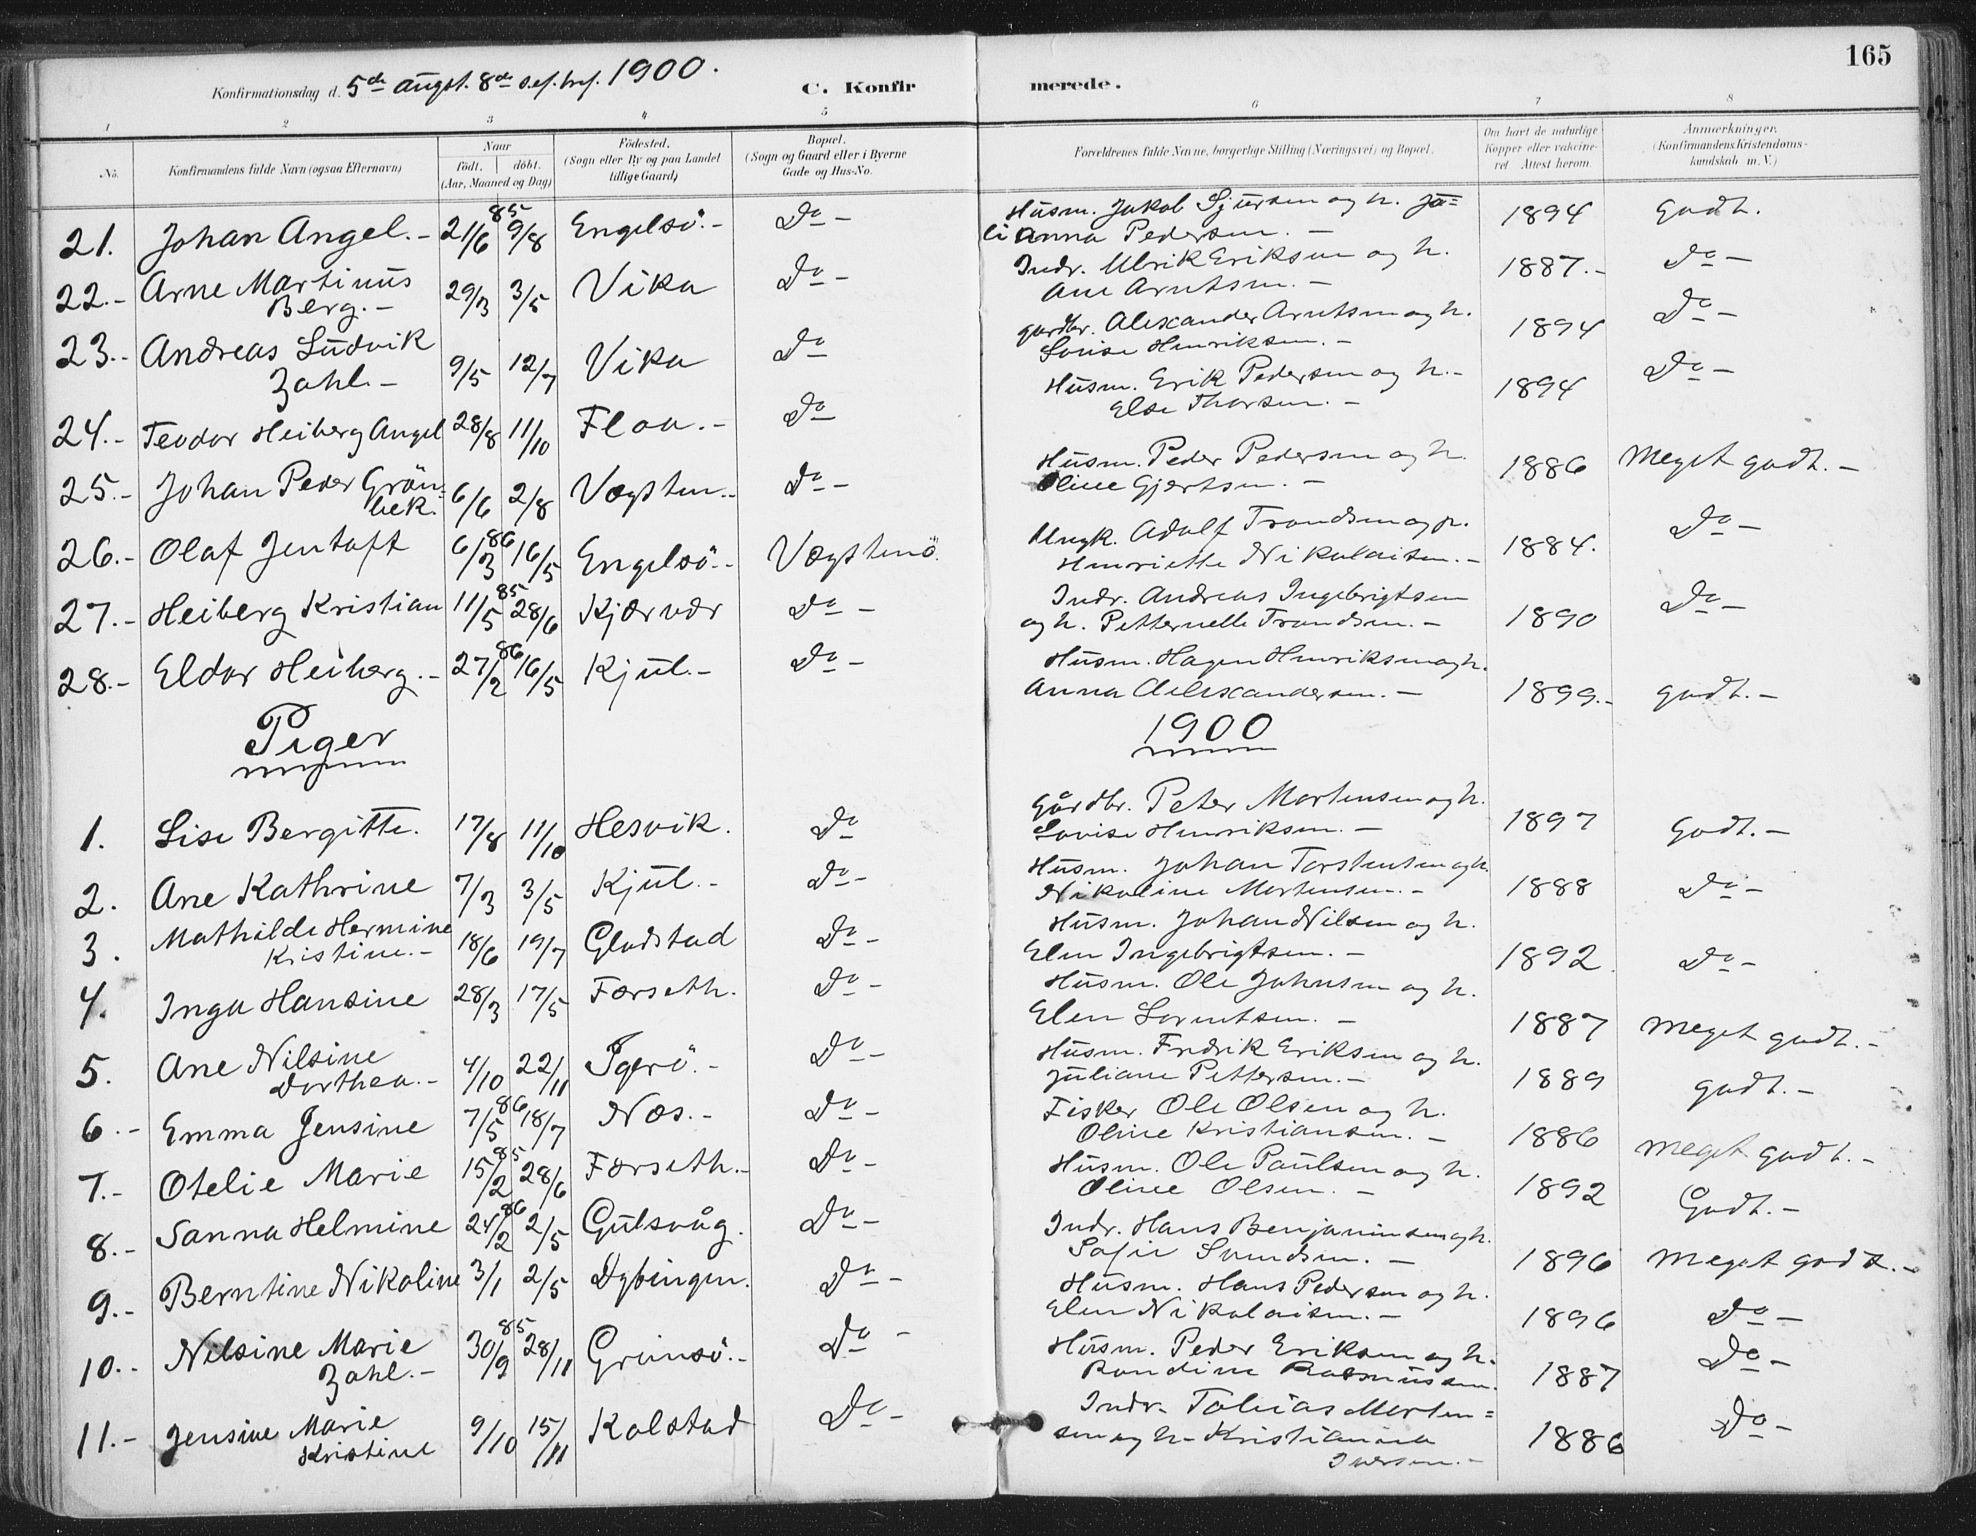 165
Konfirmationsdag d. 5de augst. 8de 1900.
C. Konfirmerede.
1 2 3 4 5 6 7 8
No. Konfirmandens fulde Navn (ogsaa Efternavn) Naar födt. döbt. (Aar, Maaned og Dag) Födested. (Sogn eller By og paa Landet tillige Gaard) Bopæl. (Sogn og Gaard eller i Byerne Gade og Hus-No. Forældrenes fulde Navne, borgerlige Stilling (Næringsvei) og Bopæl. Om havt de naturlige Kopper eller vakcineret Attest herom. Anmærkninger. (Konfirmandens Kristendomskundskab m. V.)
21. Johan Angel. - 21/6 85 9/8 Engelsö. - Do - Husm. Jakob Sjursen og h. Ju= 1894 Godt.
lianna Pedersen. -
22. - Arne Martinus 29/3 3/5 Vika Do - Indr. Ulrik Eriksen og h. 1887. - Do -
Berg. - Ane Arntsen. -
23. - Andreas Ludvik 9/5 12/7 Vika Do gardbr. Alexander Arntsen og h. 1894 Do -
Zahl. - Lovise Henriksen. -
24. - Teodor Heiberg Angel 28/8 11/10 Floa. - Do Husm. Erik Pedersen og h. - 1894 Do -
Else Thorsen. -
25. - Johan Peder Grön= 6/6 2/8 Vegsten. - Do - Husm. Peder Pedersen og h. 1886 Meget godt. -
bek. Oline Gjertsen. -
26. - Olaf Jentoft 6/3 86 16/5 Engelsö. - Vegstenö. Ungk. Adolf Trondsen og p. 1884. Do -
Henriette Nikolaisen. -
27. - Heiberg Kristian 11/5 85 28/6 Kjærvær Do - Indr. Andreas Ingebrigtsen 1890 Do -
og h. Petternelle Trondsen. -
28. - Eldor Heiberg. - 27/2 86 16/5 Kjul. - Do - Husm. Hagen Henriksen og h. 1899. - godt. -
Anna Alexandersen. -
Piger 1900
1. Lise Bergitte. 17/8 11/10 Hesvik. Do Gårdbr. Peter Mortensen og h. 1897 Godt. -
Lovise Henriksen. -
2. Ane Kathrine 7/3 3/5 Kjul. - Do - Husm. Johan Torstensen og h. 1888 Do -
Nikoline Mortensen. -
3. Mathilde Hermine 18/6 19/7 Gladstad Do - Husm. Johan Nilsen og h. 1892 Do -
Kristine. - Elen Ingebrigtsen. -
4. Inga Hansine 28/3 17/5 Forseth. Do - Husm. Ole Johnsen og h. 1887 Meget godt. -
Elen Lorentsen. -
5. Ane Nilsine 4/10 22/11 Igerö. - Do - Husm. Fredrik Eriksen og h. 1889 godt. -
Dorthea. - Juliane Pettersen. -
6. - Emma Jensine 7/5 86 18/7 Nes. - Do - Fisker Ole Olsen og h. 1886 Meget godt. -
Oline Kristiansen. -
7. - Otelie Marie 15/2 85 28/6 Forseth. - Do - Husm. Ole Paulsen og h. 1892 Godt. -
Oline Olsen. -
8. - Sanna Helmine 24/2 86 2/5 Gulsvåg. Do - Indr. Hans Benjaminsen og h. 1896 Meget godt. -
Sofie Svendsen. -
9. - Berntine Nikoline 3/1 2/5 Dybingen. Do - Husm. Hans Pedersen og h. 1896 Do -
Elen Nikolaisen. -
10. - Nilsine Marie 30/9 85 28/11 Grimsö. - Do - Husm. Peder Eriksen og h. 1887 Do -
Zahl. - Rondine Rasmussen.
11. - Jensine Marie 9/10 15/11 Kolstad Do - Indr. Tobias Morten= 1886 Do -
Kristine sen og h. Kristianna
Iversen. -